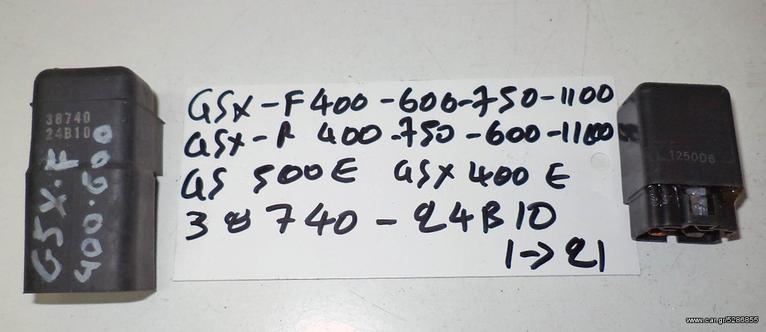 38740
24B10
GSX-F
400-600
GSX-F 400-600-750-1100
GSX-R 400-750-600-1100
GS 500E GSX 400 E
38740-24B10
1→21
125006
www.car.gr/5286855